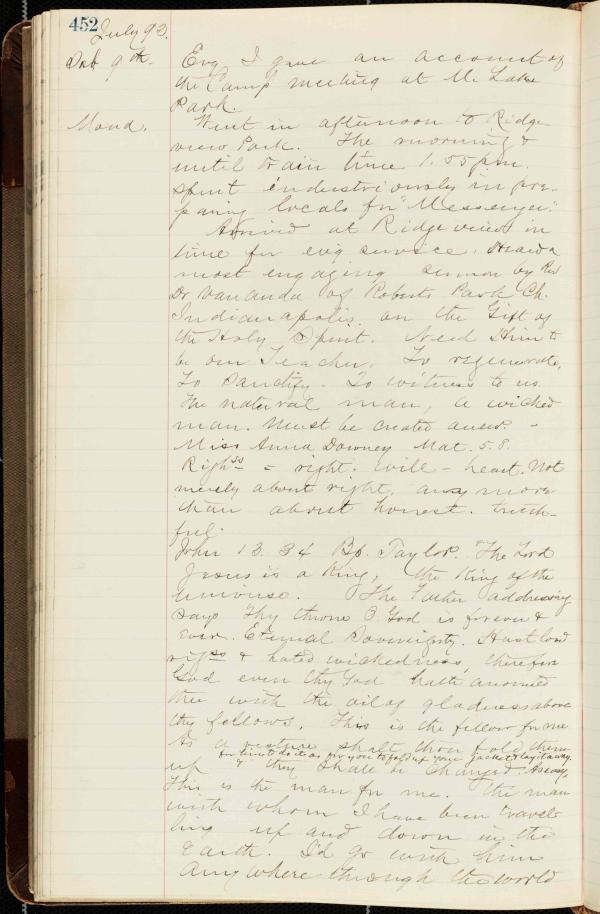 452 July 93.
Sab 9th. Evg I gave an account of
the Camp meeting at M. Lake
Park.
Mond. Went in afternoon to Ridge
view Park. The morning &
until train time 1.55 pm.
spent industriously in pre-
paring locals for "Messenger."
Arrived at Ridgeview in
time for evg service. Heard a
most engaging sermon by Rev
Dr Vananda of Roberts Park Ch.
Indianapolis, on the Gift of
the Holy Spirit. Need Him to
be our Teacher. To regenerate,
To Sanctify. To witness to us.
The natural man, a wicked
man. Must be created anew. -
Miss Anna Downey Mat. 5.8.
Righss = right. will - heart. Not
merely about right, any more
than about honest. truth-
ful.
John 13.34 Bp. Taylor. "The Lord
Jesus is a King, the King of the
Universe. The Father addressing
says Thy throne O God is forever &
ever. Eternal Sovereignty. Hast loved
rigss & hated wickedness, therefore
God even thy God hath anointed
thee with the oil of gladness above
thy fellows. This is the fellow for me
As a vesture shalt thou fold them
as for you to fold up your jacket & lay it away.
up & they shall be changed.
This is the man for me. The man
with whom I have been travel-
ling up and down in the
Earth. I'd go with him
Anywhere through the world